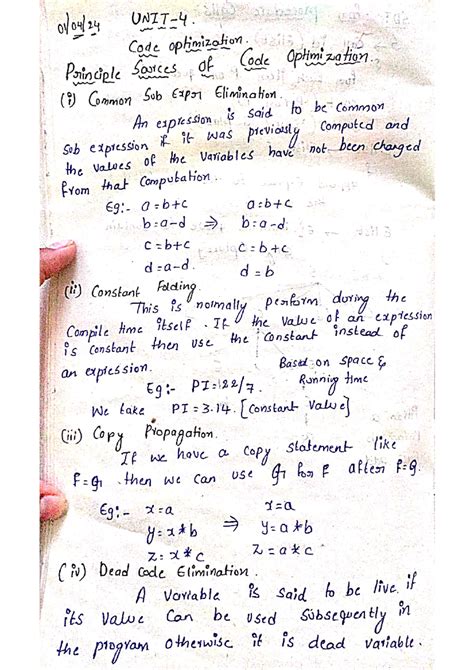 01/04/24 UNIT-4.
Code optimization.
Principle Sources Of Code Optimization.
(i) Common Sub Expr Elimination.
An expression is said to be common
sub expression if it was previously computed and
the values of the variables have not been changed
from that computation.
Eg:- a=b+c a=b+c
b=a-d ⇒ b=a-d
c=b+c c=b+c
d=a-d. d=b
(ii) Constant Folding.
This is normally perform during the
compile time itself. If the value of an expression
is constant then use the constant instead of
an expression. Based on space &
Eg:- PI=22/7. Running time
We take PI=3.14. [Constant Value]
(iii) Copy Propagation.
If we have a copy statement like
f=g. then we can use g for f after f=g.
Eg:- x=a x=a
y=x*b ⇒ y=a*b
z=x*c z=a*c
(iv) Dead Code Elimination.
A variable is said to be live if
its value can be used subsequently in
the program otherwise it is dead variable.